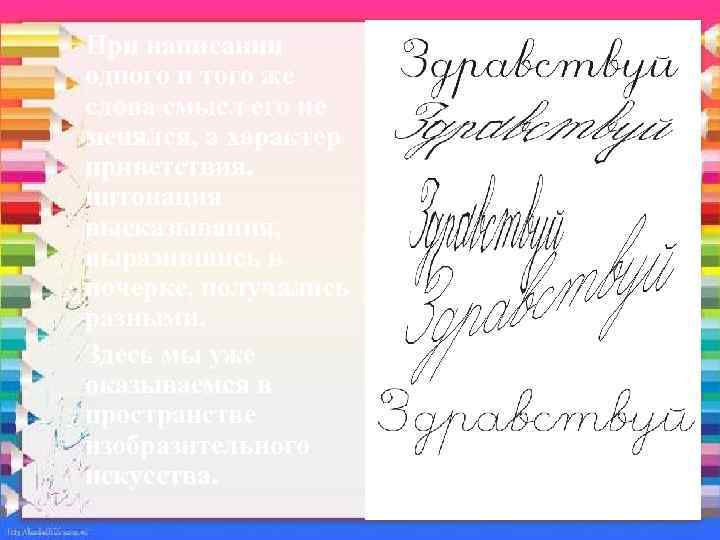 При написании
одного и того же
слова смысл его не
менялся, а характер
приветствия,
интонация
высказывания,
выразившись в
почерке, получались
разными.
Здесь мы уже
оказываемся в
пространстве
изобразительного
искусства.
Здравствуй
Здравствуй
Здравствуй
Здравствуй
Здравствуй